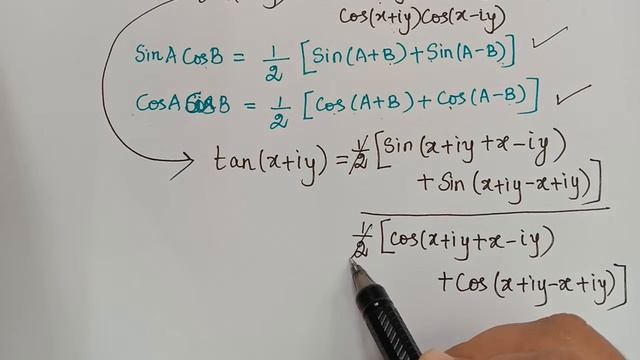 Cos(x+iy)Cos(x-iy)
SinA CosB = 1/2 [Sin(A+B)+Sin(A-B)]
CosA CosB = 1/2 [Cos(A+B)+Cos(A-B)]
tan(x+iy) = 1/2 [Sin(x+iy+x-iy)
+ Sin(x+iy-x+iy)]
1/2 [Cos(x+iy+x-iy)
+Cos(x+iy-x+iy)]